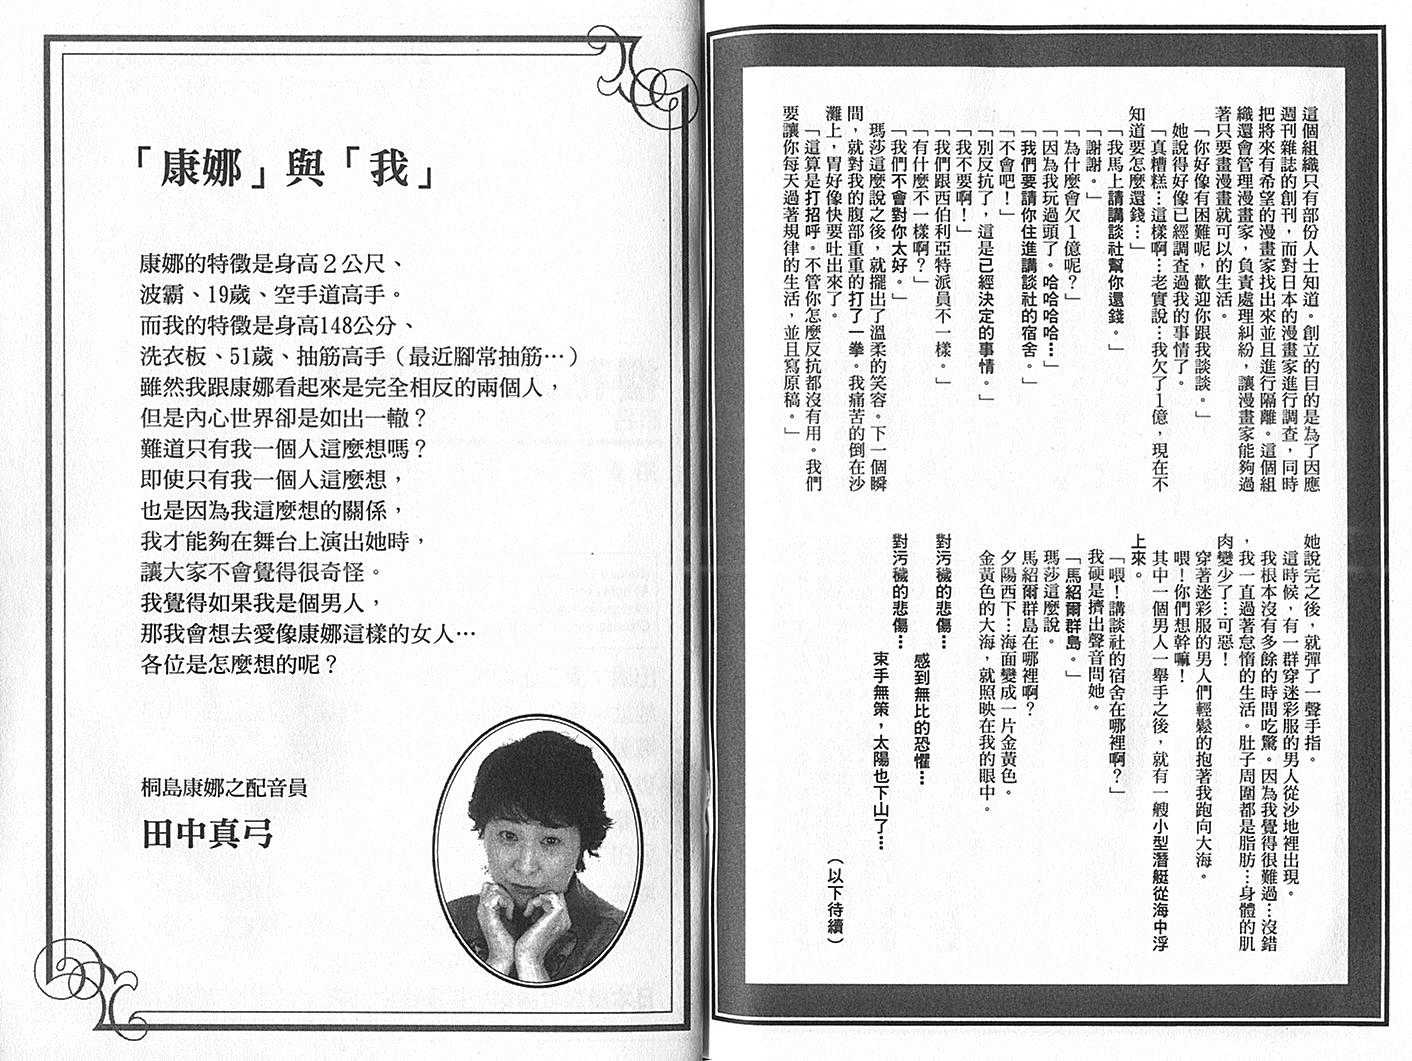 這個組織只有部份人士知道。創立的目的是為了因應
週刊雜誌的創刊，而對日本的漫畫家進行調查，同時
把將來有希望的漫畫家找出來並且進行隔離。這個組
織還會管理漫畫家，負責處理糾紛，讓漫畫家能夠過
著只要畫漫畫就可以的生活。
「你好像有困難呢，歡迎你跟我談談。」
她說得好像已經調查過我的事情了。
「真糟糕…這樣啊…老實說…我欠了1億，現在不
知道要怎麼還錢…」
「我馬上請講談社幫你還錢。」
「謝謝。」
「為什麼會欠1億呢？」
「因為我玩過頭了。哈哈哈哈…」
「我們要請你住進講談社的宿舍。」
「不會吧！」
「別反抗了，這是已經決定的事情。」
「我不要啊！」
「我們跟西伯利亞特派員不一樣。」
「有什麼不一樣啊？」
「我們不會對你太好。」
瑪莎這麼說之後，就擺出了溫柔的笑容。下一個瞬
間，就對我的腹部重重的打了一拳。我痛苦的倒在沙
灘上，胃好像快要吐出來了。
「這算是打招呼。不管你怎麼反抗都沒有用。我們
要讓你每天過著規律的生活，並且寫原稿。」
她說完之後，就彈了一聲手指。
這時候，有一群穿迷彩服的男人從沙地裡出現。
我根本沒有多餘的時間吃驚。因為我覺得很難過…沒錯
，我一直過著怠惰的生活。肚子周圍都是脂肪…身體的肌
肉變少了…可惡！
穿著迷彩服的男人們輕鬆的抱著我跑向大海。
喂！你們想幹嘛！
其中一個男人一舉手之後，就有一艘小型潛艇從海中浮
上來。
「喂！講談社的宿舍在哪裡啊？」
我硬是擠出聲音問她。
「馬紹爾群島。」
瑪莎這麼說。
馬紹爾群島在哪裡啊？
夕陽西下…海面變成一片金黃色。
金黃色的大海，就照映在我的眼中。
對污穢的悲傷…
感到無比的恐懼…
對污穢的悲傷…
束手無策，太陽也下山了…
（以下待續）
「康娜」與「我」
康娜的特徵是身高2公尺、
波霸、19歲、空手道高手。
而我的特徵是身高148公分、
洗衣板、51歲、抽筋高手（最近腳常抽筋…）
雖然我跟康娜看起來是完全相反的兩個人，
但是內心世界卻是如出一轍？
難道只有我一個人這麼想嗎？
即使只有我一個人這麼想，
也是因為我這麼想的關係，
我才能夠在舞台上演出她時，
讓大家不會覺得很奇怪。
我覺得如果我是個男人，
那我會想去愛像康娜這樣的女人…
各位是怎麼想的呢？
桐島康娜之配音員
田中真弓